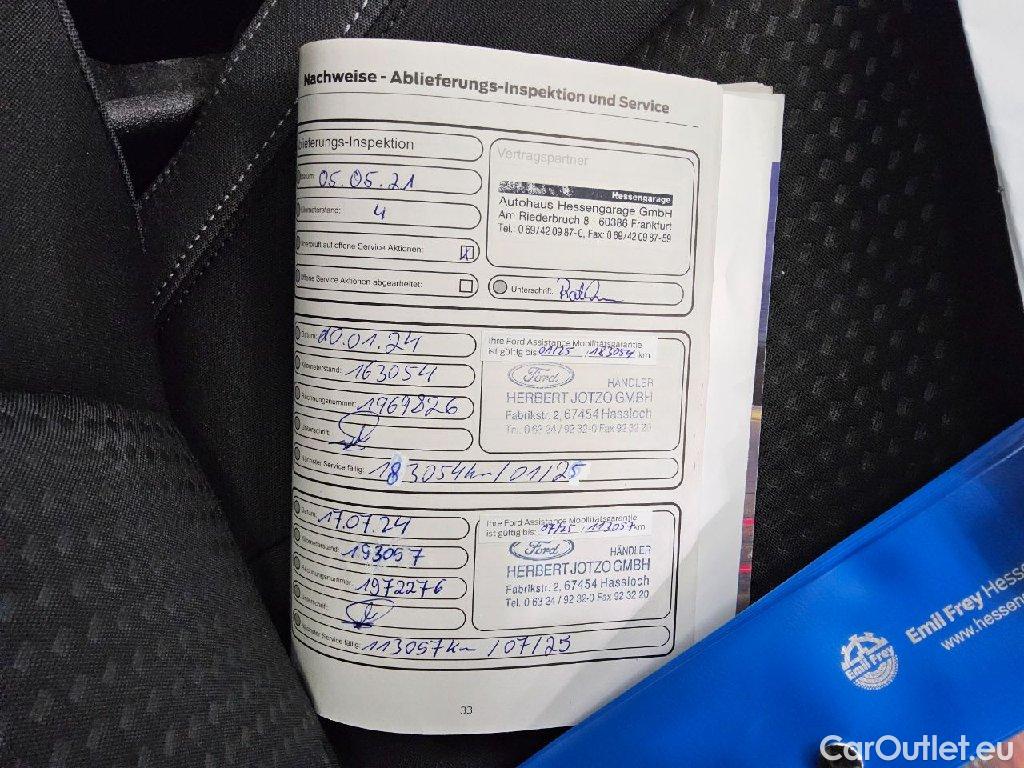 Nachweise - Ablieferungs-Inspektion und Service
blieferungs-Inspektion
05.05.21
4
Offene Service Aktionen abgearbeitet:
Vertragspartner
Hessengarage
Autohaus Hessengarage GmbH
Am Riederbruch 8 60386 Frankfurt
Tel.: 0 69/42 09 87-0, Fax: 0 69/42 09 87-59
Unterschrift:
Datum: 20.01.24
Kilometerstand: 163054
Rechnungsnummer: 1969826
Unterschrift:
Nächster Service fällig: 183054km/01/25
Ihre Ford Assistance Mobilitätsgarantie
ist gültig bis 01/25 183054 km
Ford HÄNDLER
HERBERT JOTZO GMBH
Fabrikstr. 2, 67454 Hassloch
Tel. 0 63 24 / 92 32-0 Fax 92 32 20
Datum: 17.07.24
Kilometerstand: 193057
Rechnungsnummer: 1972276
Unterschrift:
Nächster Service fällig: 113057km /07/25
Ihre Ford Assistance Mobilitätsgarantie
ist gültig bis: 07/25 113057 km
Ford HÄNDLER
HERBERT JOTZO GMBH
Fabrikstr. 2, 67454 Hassloch
Tel. 0 63 24 / 92 32-0 Fax 92 32 20
33
Emil Frey
Emil Frey Hesse
www.hesseng
CarOutlet.eu